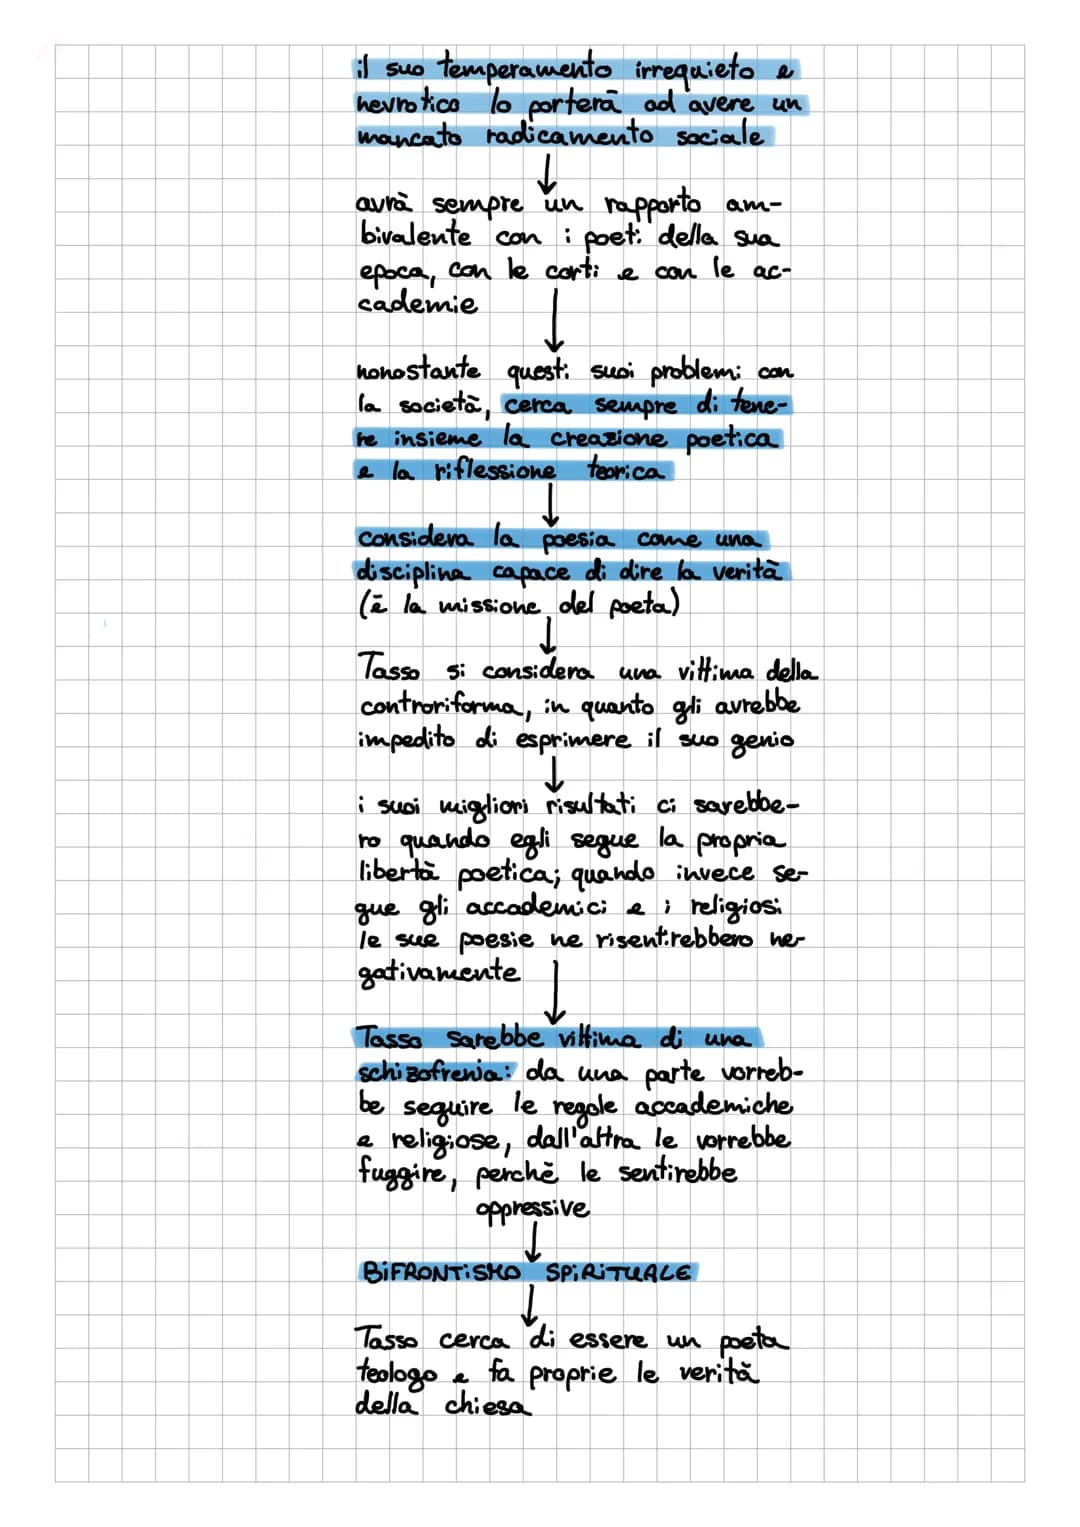 il suo temperamento irrequieto e
nevrotico lo porterà ad avere un
mancato radicamento sociale
↓
avrà sempre un rapporto am-
bivalente con i poeti della sua
epoca, con le corti e con le ac-
cademie
↓
nonostante questi suoi problemi con
la società, cerca sempre di tene-
re insieme la creazione poetica
e la riflessione teorica
↓
considera la poesia come una
disciplina capace di dire la verità
(è la missione del poeta)
↓
Tasso si considera una vittima della
controriforma, in quanto gli avrebbe
impedito di esprimere il suo genio
↓
i suoi migliori risultati ci sarebbe-
ro quando egli segue la propria
libertà poetica; quando invece se-
gue gli accademici e i religiosi
le sue poesie ne risentirebbero ne-
gativamente
↓
Tasso sarebbe vittima di una
schizofrenia: da una parte vorreb-
be seguire le regole accademiche
e religiose, dall'altra le vorrebbe
fuggire, perchè le sentirebbe
oppressive
↓
BiFRONTiSMO SPiRiTUALE
↓
Tasso cerca di essere un poeta
teologo e fa proprie le verità
della chiesa